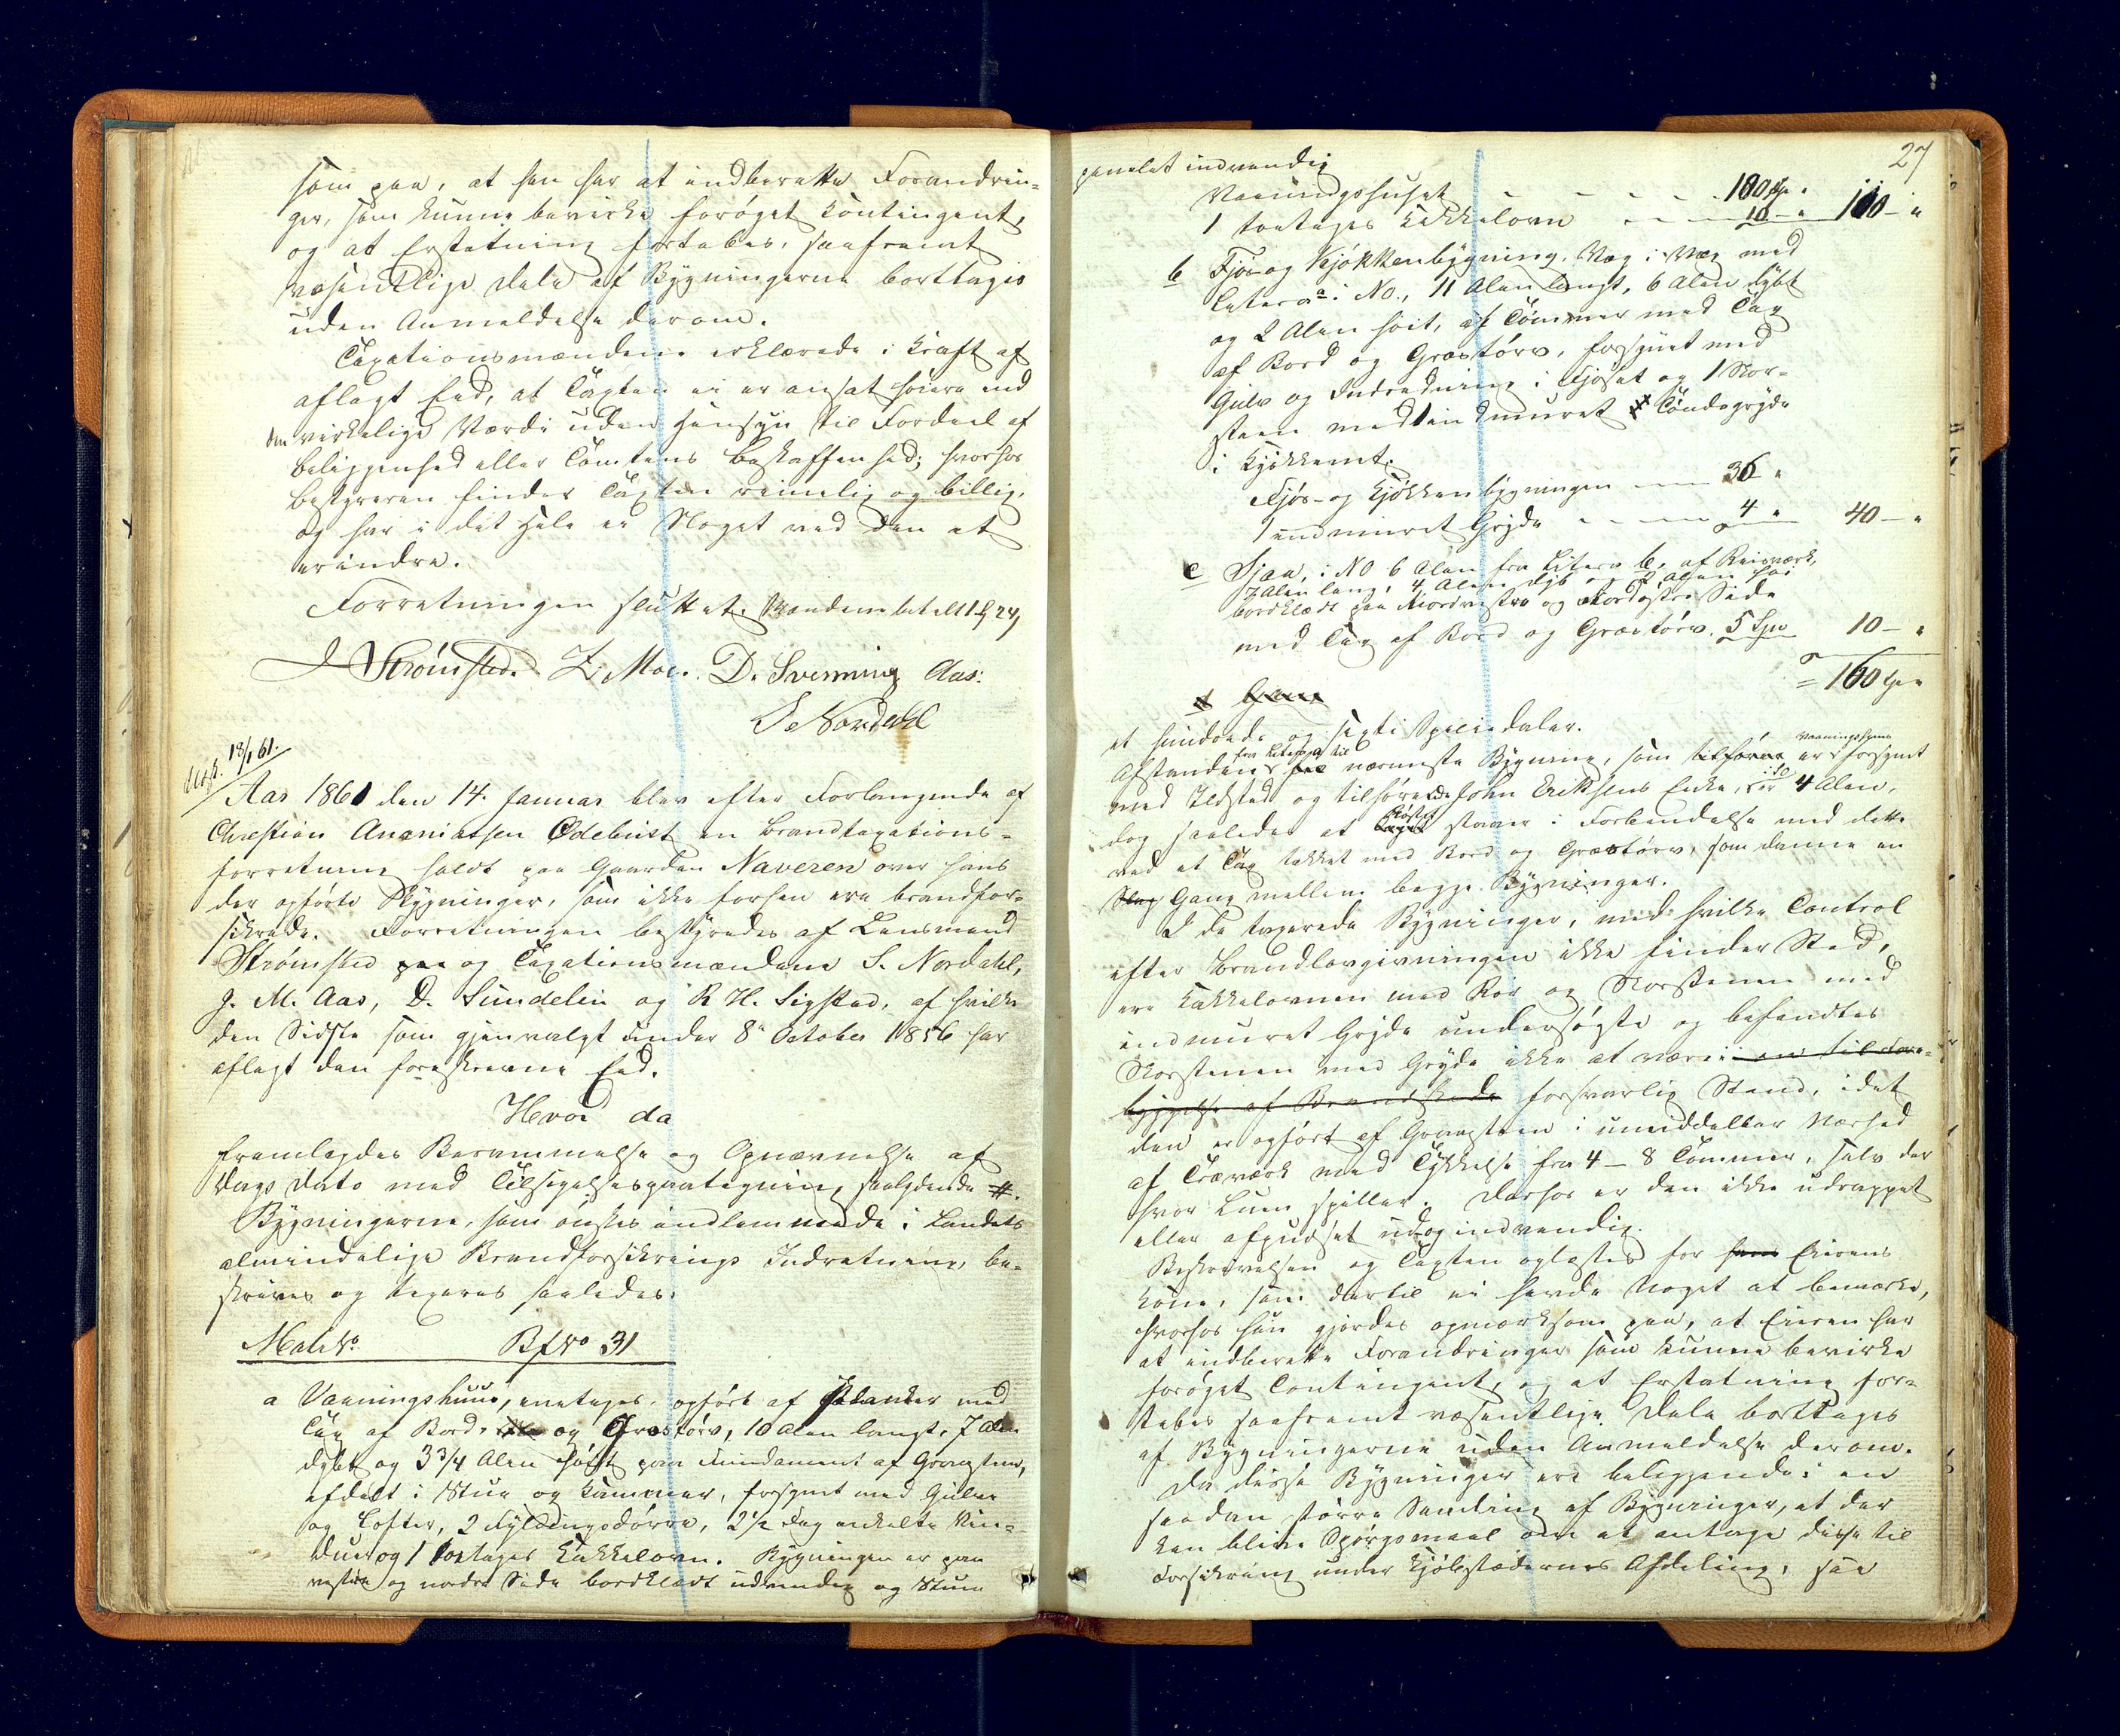 som paa, at han har at indberette Forandrin-
ger, som kunne bevirke forøget Contingent,
og at Erstatning fortabes, saafremt
væsentlige Dele af Bygningerne borttages
uden Anmeldelse derom.
Taxationsmændene erklærede i Kraft af
aflagt Eed, at Taxten ei er ansat høiere end
den virkelige Værdi uden Hensyn til Fordeel af
Beliggenhed eller Tomtens Beskaffenhed; hvorhos
Bestyreren finder Taxten rimelig og billig,
og har i det Hele ei Noget ved den at
erindre.
Forretningen sluttet. Mændene betalt 1 24
J Strømsted. Z. Moe. D. Svenning Aas:
S Nordahl
Udf. 18/1 61.
Aar 1861 den 14. Januar blev efter Forlangende af
Christian Ananiassen Odebust en Brandtaxations-
forretning holdt paa Gaarden Naveren over hans
der opførte Bygninger, som ikke forhen ere brandfor-
sikrede. Forretningen bestyredes af Lensmand
Strømsted paa og Taxationsmændene S. Nordahl,
J. M. Aas, D. Sundelin og R H. Sigstad, af hvilke
den Sidste som gjenvalgt under 8de October 1856 har
aflagt den foreskrevne Eed.
Hvor da
fremlagdes Berammelse og Opnævnelse af
Dags Dato med Tilsigelsespaategning saalydende #.
Bygningerne, som ønskes indlemmede i Landets
almindelige Brandforsikrings Indretning, be-
skrives og taxeres saaledes:
Matr No. Bf No 31
a Vaaningshuus, eenetages, opført af Planker med
Tag af Bord, og Græstørv, 10 Alen langt, 7 Alen
dybt og 3 3/4 Alen høit paa Fundament af Graasteen,
afdelt i Stue og Kammer, forsynet med Gulve
og Lofter, 2 Fyldingsdørre, 2 1/2 Fag enkelte Vin-
duer og 1 toetages Kakkelovn. Bygningen er paa
vestre og nordre Side bordklædt udvendig og Stuen
27
panelet indvendig
Vaaningshuset - - - - 100 Sp "
1 toetages Kakkelovn - - - 10 - " 110 - "
b Fjøs og Kjøkkenbygning, Væg i Væg med
Litera a i NO., 11 Alen langt, 6 Alen dybt
og 2 Alen høit, af Tømmer med Tag
af Bord og Græstørv, forsynet med
Gulv og Indredning i Fjøset og 1 Skor-
steen med 1 indmuret # Tøndegryde
i Kjøkkenet.
Fjøs- og Kjøkkenbygningen - - 36 "
1 indmuret Gryde - - - - 4 " 40 - "
c Sjaa, i NO 6 Alen fra Litera b, af Reisværk,
7 Alen lang, 4 Alen dyb og 2 Alen høi
bordklædt paa Nordvestre og Nordøstre Side
med Tag af Bord og Græstørv. 5 Spd 10 - "
= 160 Sp "
et hundrede og sexti Speciedaler.
Afstanden fra Litera a til nærmeste Bygning, som tilhører er Vaaningshuus forsynet
med Ildsted og tilhørende John Eriksens Enke, er 4 Alen,
dog saaledes at Taget staaer i Forbindelse med dette
ved et Tag tækket med Bord og Græstørv, som danner en
Slags Gang mellem begge Bygninger.
I de taxerede Bygninger, med hvilke Control
efter Brandlovgivningen ikke finder Sted,
ere Kakkelovnen med Rør og Skorstenen med
indmuret Gryde undersøgte og befandtes
Skorstenen med Gryde ikke at være i en til Fore-
byggelse af Brandskade forsvarlig Stand, idet
den er opført af Graasteen i umiddelbar Nærhed
af Træværk med Tykkelse fra 4 - 8 Tommer, selv der
hvor Luen spiller. Derhos er den ikke udrappet
eller afpudset ud- og indvendig.
Beskrivelsen og Taxten oplæstes for hans Eierens
Kone, som dertil ei havde Noget at bemærke,
hvorhos hun gjordes opmærksom paa, at Eieren har
at indberette Forandringer som kunne bevirke
forøget Contingent, og at Erstatning for-
tabes saafremt væsentlige Dele borttages
af Bygningerne uden Anmeldelse derom.
Da disse Bygninger ere beliggende i en
saadan større Samling af Bygninger, at der
kan blive Spørgsmaal om at antage disse til
Forsikring under Kjøbstædernes Afdeling, saa